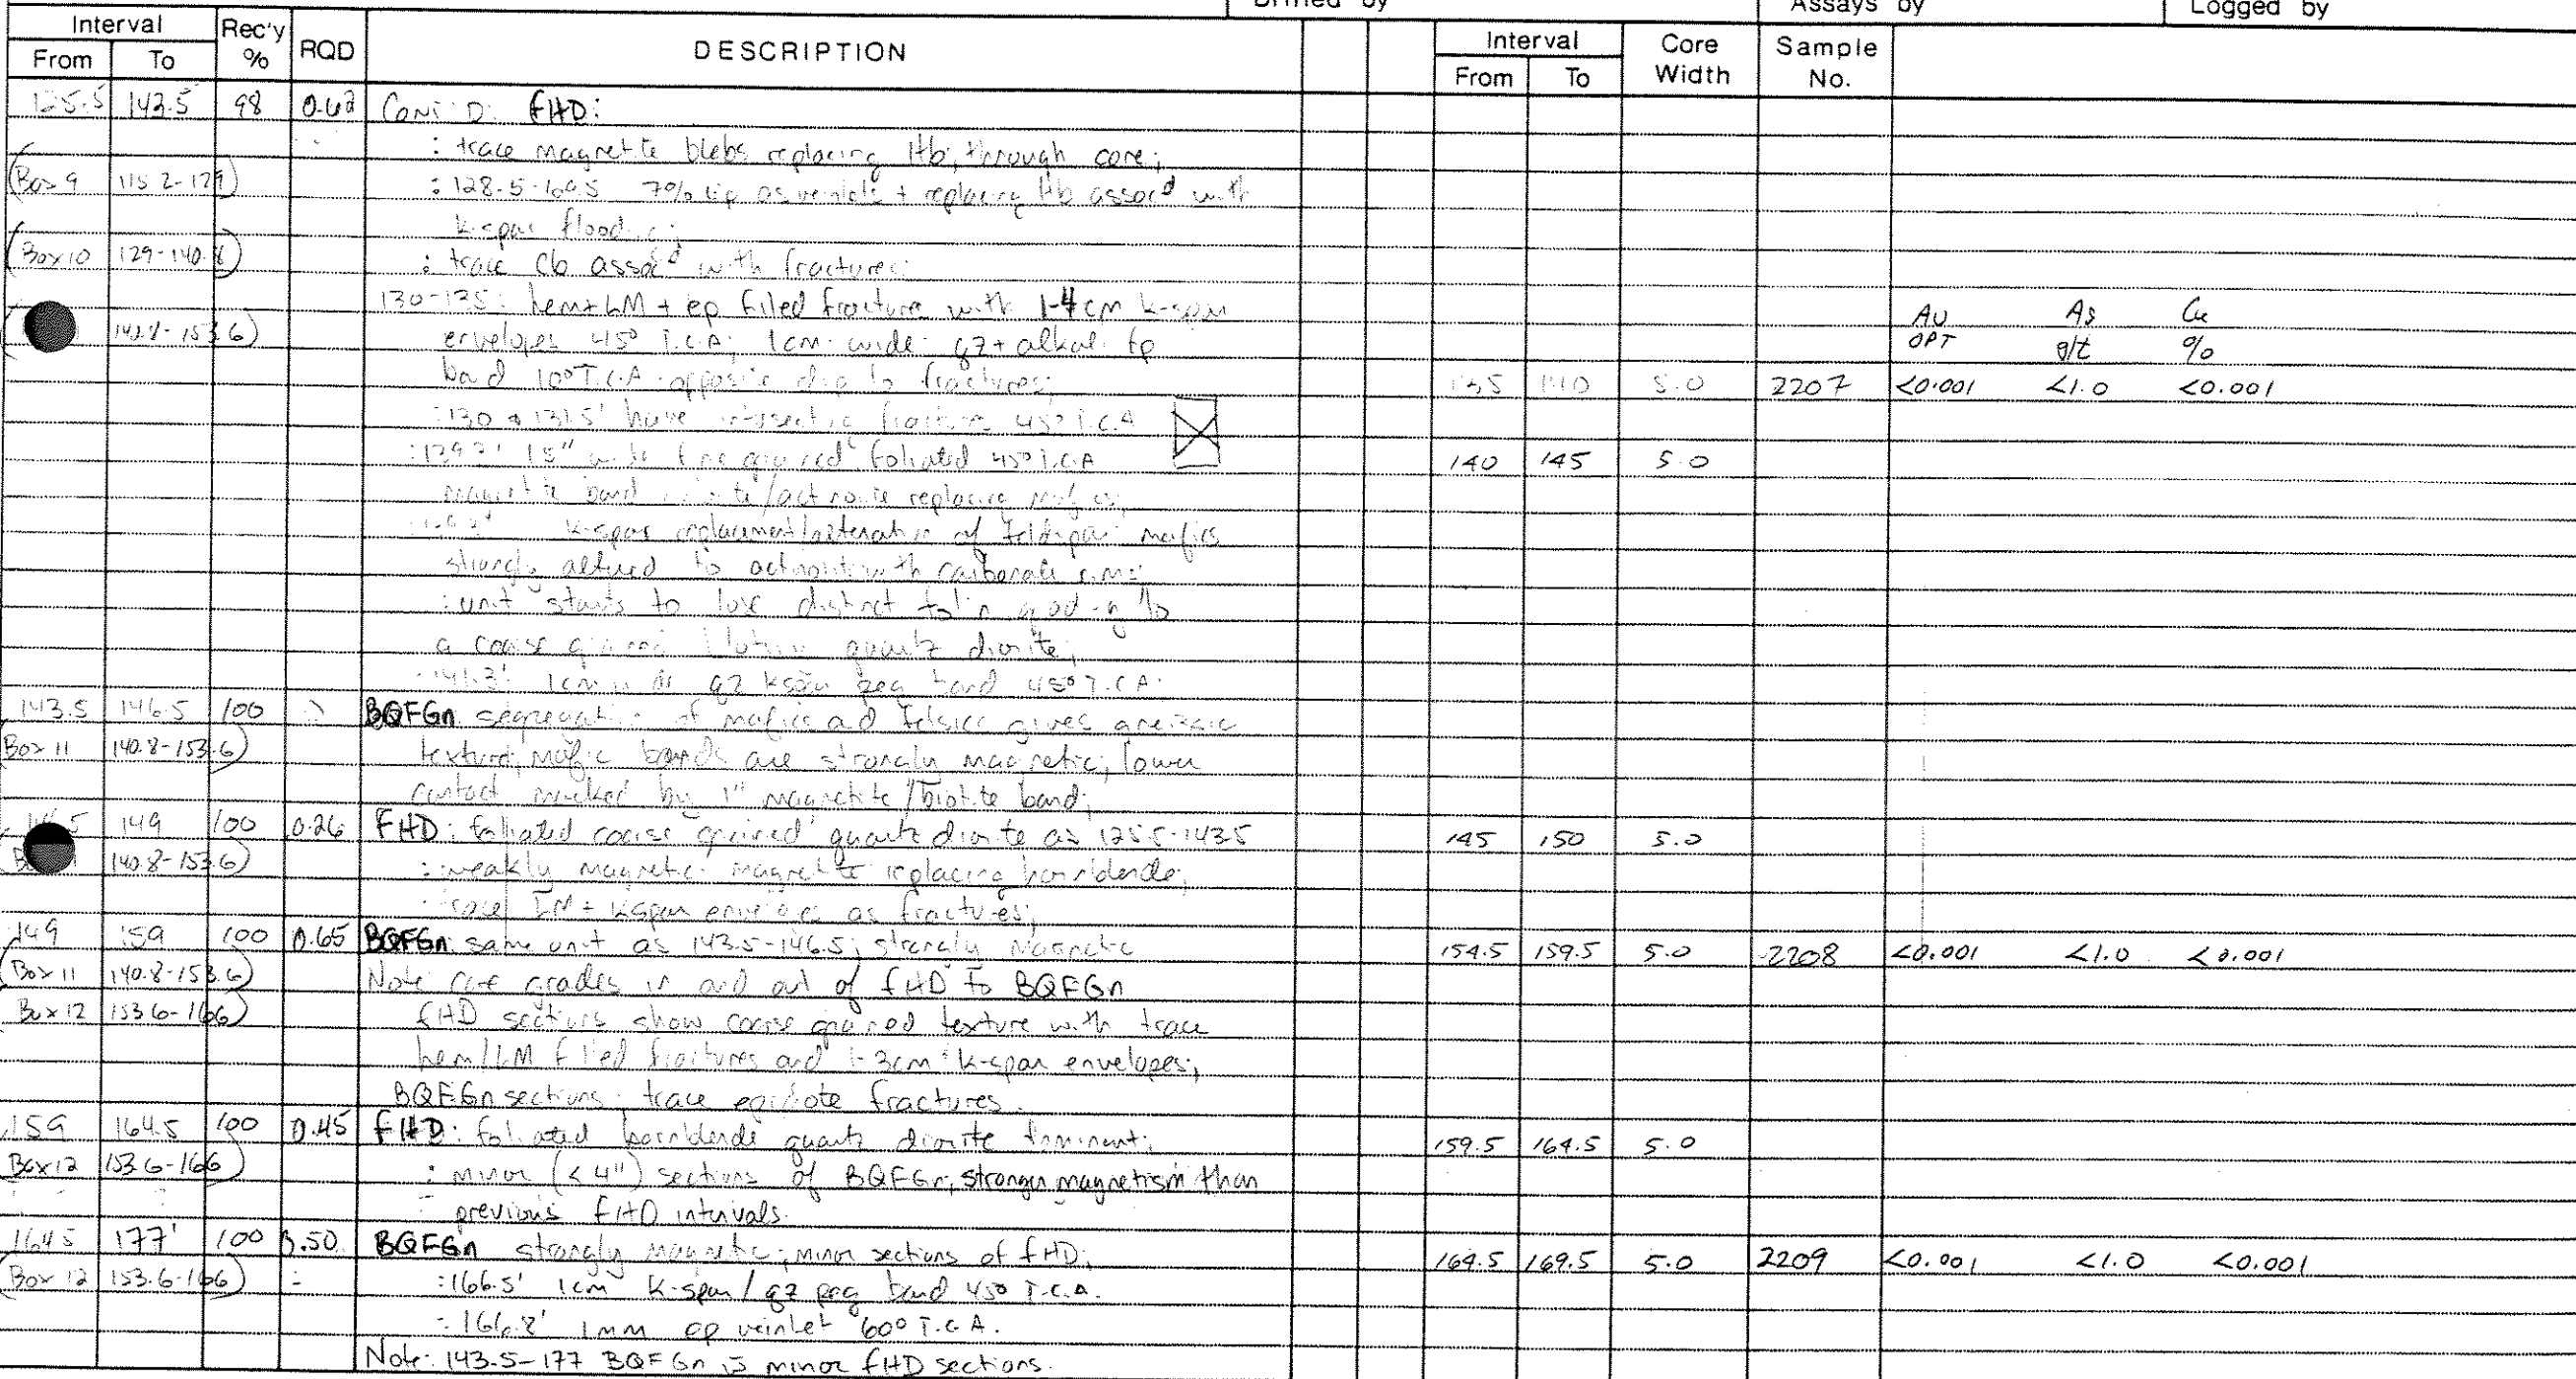 Drilled by Assays by Logged by
Interval Rec'y % RQD DESCRIPTION Interval Core Width Sample No.
From To From To
125.5 143.5 98 0.62 Cont'D: FHD:
: trace magnetite blebs replacing Hb; through core;
(Box 9 115.2-129)
: 128.5- 7% ep as veinlets + replacing Hb assoc'd with
k-spar flooding;
(Box 10 129-140.8)
: trace Cb assoc'd with fractures;
130-135: hem+LM + ep filled fracture with 1-4 cm k-spar
140.8-153.6)
envelopes 45° T.C.A; 1cm wide qz + alkali fp
Au As Cu
OPT g/t %
band 10° T.C.A opposite to fractures;
135 140 5.0 2207 <0.001 <1.0 <0.001
: 130 & 131.5' have intersecting fractures 45° T.C.A
wide fine grained foliated 45° T.C.A
140 145 5.0
magnetite band replacing mafics;
k-spar replacement/alteration of feldspar mafics
strongly altered to actinolite with carbonate rims;
: unit starts to lose distinct grading to
a coarse grained quartz diorite;
: 141.3' 1cm wide qz kspar peg band 45° T.C.A.
143.5 146.5 100 BQFGn segregation of mafics and felsics gives gneissic
Box 11 140.8-153.6) texture; mafic bands are strongly magnetic; lower
contact marked by 1" magnetite/biotite band;
146.5 149 100 0.26 FHD: foliated coarse grained quartz diorite as 125.5-143.5
145 150 5.0
140.8-153.6) : weakly magnetic: magnetite replacing hornblende;
: trace LM + kspar envelopes as fractures;
149 159 100 0.65 BQFGn: same unit as 143.5-146.5; strongly magnetic
154.5 159.5 5.0 2208 <0.001 <1.0 <0.001
(Box 11 140.8-153.6) Note: core grades in and out of FHD to BQFGn
Box 12 153.6-166) FHD sections show coarse grained texture with trace
hem/LM filled fractures and 1-3cm k-spar envelopes;
BQFGn sections: trace epidote fractures.
159 164.5 100 0.45 FHD: foliated hornblende quartz diorite dominant;
159.5 164.5 5.0
Box 12 153.6-166) : minor (<4") sections of BQFGn; stronger magnetism than
previous FHD intervals.
164.5 177' 100 0.50 BQFGn strongly magnetic; minor sections of FHD;
164.5 169.5 5.0 2209 <0.001 <1.0 <0.001
(Box 12 153.6-166) : 166.5' 1cm k-spar/qz peg band 45° T.C.A.
: 166.8' 1mm ep veinlet 60° T.C.A.
Note: 143.5-177 BQFGn minor FHD sections.